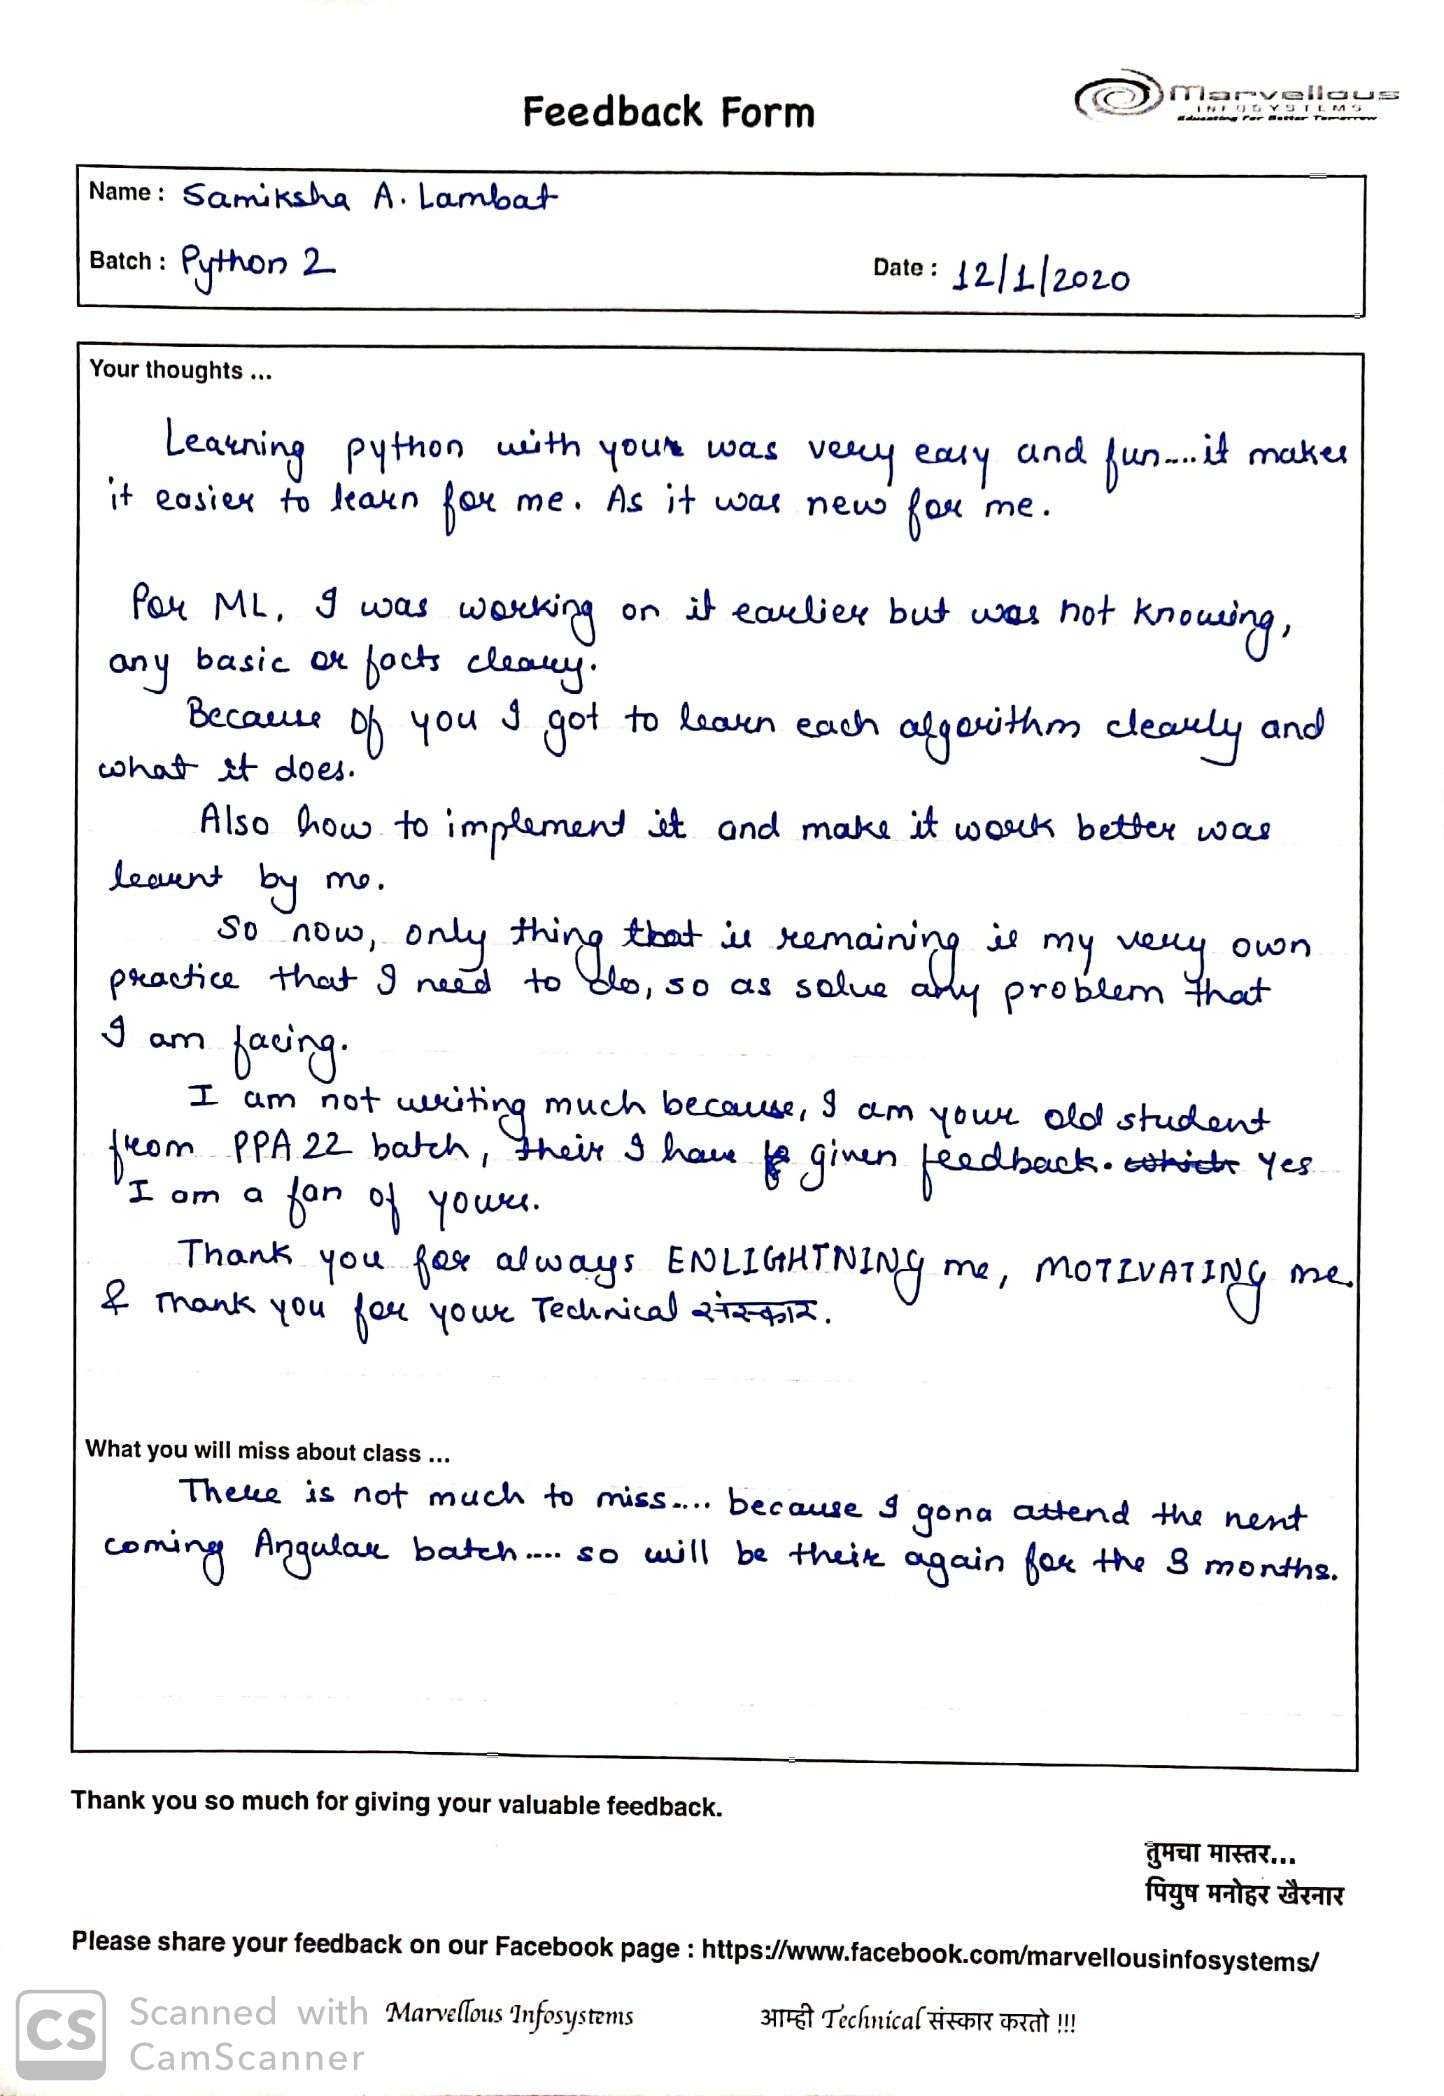 Feedback Form
Marvellous
INFOSYSTEMS
Educating For Better Tomorrow
Name : Samiksha A. Lambat
Batch : Python 2
Date : 12/1/2020
Your thoughts ...
Learning python with your was very easy and fun....it makes
it easier to learn for me. As it was new for me.
For ML, I was working on it earlier but was not knowing,
any basic or facts cleary.
Because of you I got to learn each algorithm clearly and
what it does.
Also how to implement it and make it work better was
learnt by me.
So now, only thing that is remaining is my very own
practice that I need to do, so as solve any problem that
I am facing.
I am not writing much because, I am your old student
from PPA 22 batch, their I have given feedback. which yes
I am a fan of yours.
Thank you for always ENLIGHTNING me, MOTIVATING me
& Thank you for your Technical संस्कार.
What you will miss about class ...
There is not much to miss.... because I gona attend the next
coming Angular batch.... so will be their again for the 3 months.
Thank you so much for giving your valuable feedback.
तुमचा मास्तर...
पियुष मनोहर खैरनार
Please share your feedback on our Facebook page : https://www.facebook.com/marvellousinfosystems/
Marvellous Infosystems आम्ही Technical संस्कार करतो !!!
CS Scanned with
CamScanner